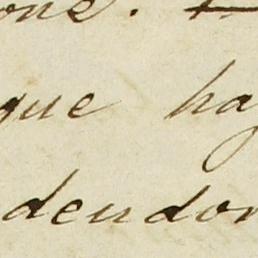 ons.
que ha
dendor